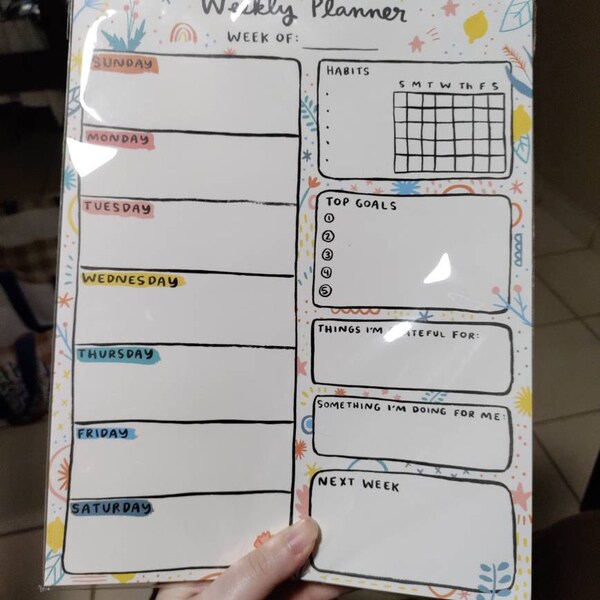 Weekly Planner
WEEK OF:
SUNDAY
MONDAY
TUESDAY
WEDNESDAY
THURSDAY
FRIDAY
SATURDAY
HABITS
S M T W Th F S
TOP GOALS
1
2
3
4
5
THINGS I'M GRATEFUL FOR:
SOMETHING I'M DOING FOR ME:
NEXT WEEK